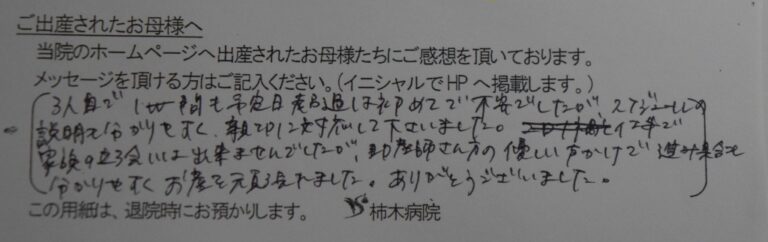 ご出産されたお母様へ
当院のホームページへ出産されたお母様たちにご感想を頂いております。
メッセージを頂ける方はご記入ください。(イニシャルでHPへ掲載します。)
3人目で1週間も予定日超過は初めてで不安でしたが、スケジュールの
説明も分かりやすく、親切に対応して下さいました。 仕事で
家族の立ち会いは出来ませんでしたが、助産師さん方の優しい声かけで進み具合も
分かりやすくお産を元気に 。ありがとうございました。
この用紙は、退院時にお預かりします。 柿木病院